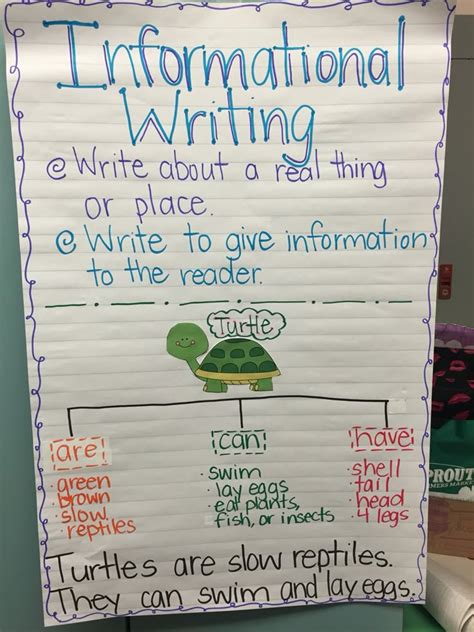 Informational
Writing
Write about a real thing
or place.
Write to give information
to the reader.
Turtle
are
can
have
· green
· brown
· slow
· reptiles
· swim
· lay eggs
· eat plants,
fish, or insects
· shell
· tail
· head
· 4 legs
Turtles are slow reptiles.
They can swim and lay eggs.
SPROUT